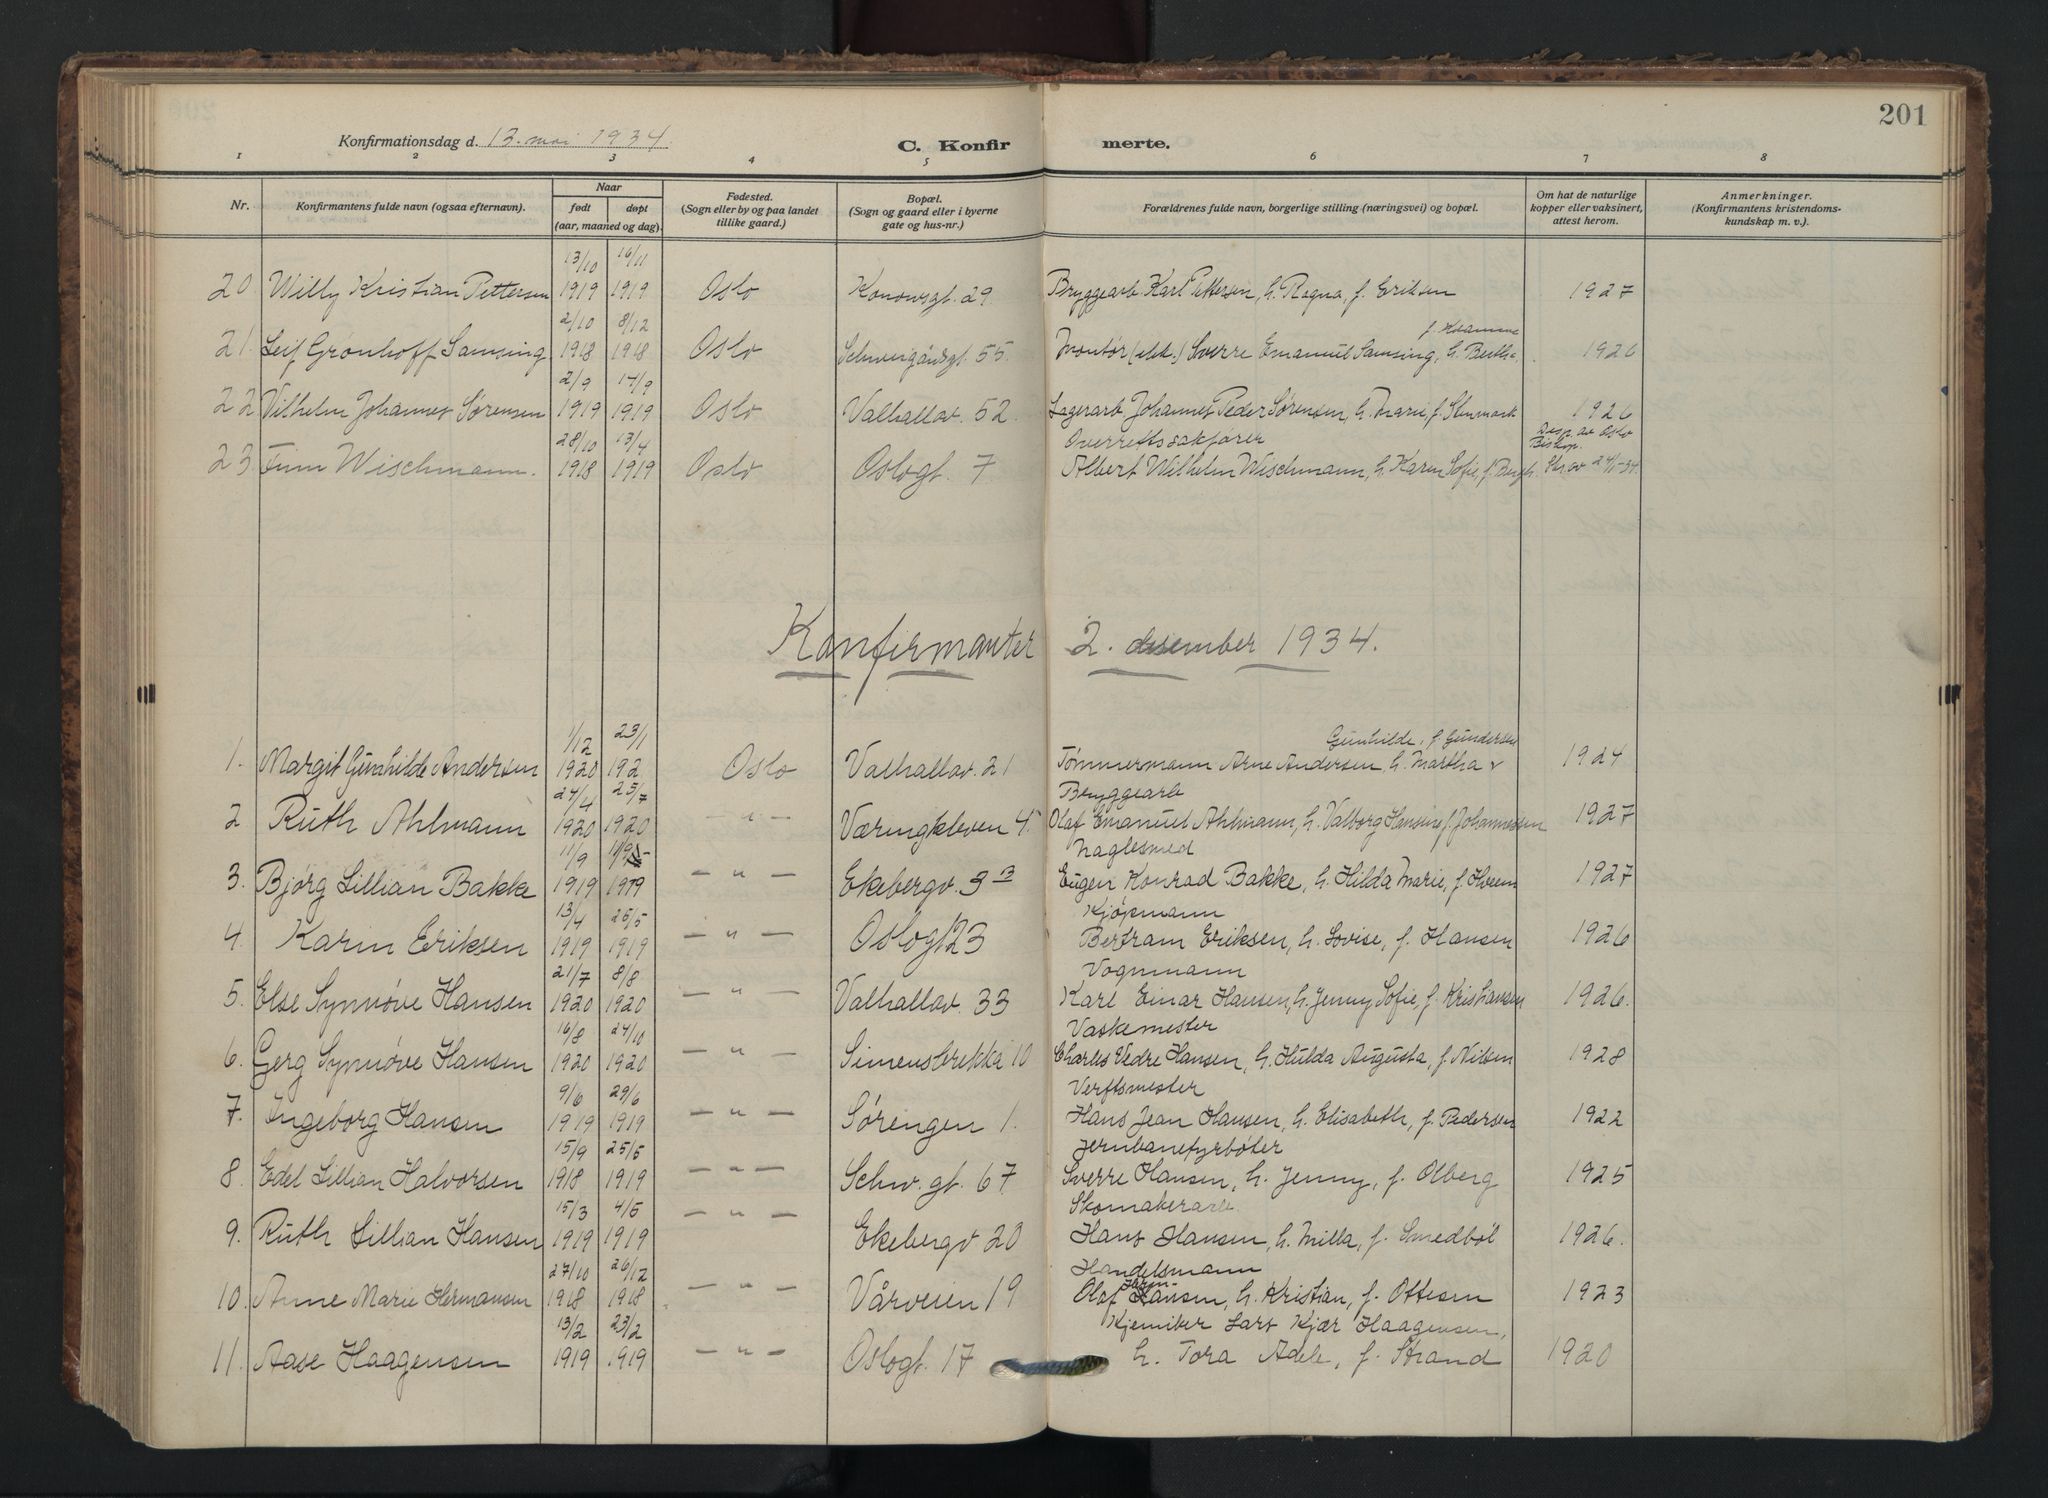 201
Konfirmationsdag d. 13. mai 1934.
C. Konfirmerte.
1 2 3 4 5 6 7 8
Nr.
Konfirmantens fulde navn (ogsaa efternavn).
Naar
født døpt
(aar, maaned og dag)
Fødested.
(Sogn eller by og paa landet
tillike gaard.)
Bopæl.
(Sogn og gaard eller i byerne
gate og hus-nr.)
Forældrenes fulde navn, borgerlige stilling (næringsvei) og bopæl.
Om hat de naturlige
kopper eller vaksinert,
attest herom.
Anmerkninger.
(Konfirmantens kristendoms-
kundskap m. v.).
13/10 16/11
20 Willy Kristian Pettersen 1919 1919 Oslo Konowsgt. 29 Bryggearb. Karl Pettersen, h. Ragna, f. Eriksen 1927
2/10 8/12
21. Leif Grønhoff Samsing 1918 1918 Oslo Schweigårdsgt. 55. Montør (elek.) Sverre Emanuel Samsing, h. Bertha, 1926
2/9 14/9
22 Vilhelm Johannes Sørensen 1919 1919 Oslo Valhallav. 52. Lagerarb Johannes Peder Sørensen, h. Marie, f. Stenmark 1926
28/10 13/4 Overrettssakfører Disp. av Oslo
Biskop.
23. Finn Wischmann. 1918 1919 Oslo Oslogt. 7 Albert Wilhelm Wischmann, h. Karen Sofie, f. Bergh. Skr. av 24/1-34.
Konfirmanter 2. desember 1934.
1/12 23/1 Gunhilde, f. Gundersen
1. Margit Gunhilde Andersen 1920 192 Oslo Valhallav. 21 Tømmermann Arne Andersen, h. Martha 1924
24/4 25/7 Bryggearb
2 Ruth Ahlmann 1920 1920 - " - Væringkleven 4. Olaf Emanuel Ahlmann, h. Valborg Hansine, f. Johannessen 1927
11/9 Naglesmed
3. Bjørg Lillian Bakke 1919 1919 - " - Ekebergv. 3 B Eugen Konrad Bakke, h. Hilda Marie, f. Hveem 1927
13/4 25/5 Kjøpmann
4. Karin Eriksen 1919 1919 - " - Oslogt 23 Bertram Eriksen, h. Lovise, f. Hansen 1926
21/7 8/8 Vognmann
5. Else Synnøve Hansen 1920 1920 - " - Valhallav. 33 Karl Einar Hansen, h. Jenny Sofie, f. Kristiansen 1926.
16/8 24/10 Vaskemester
6. Gerg Synnøve Hansen 1920 1920 - " - Simensbrekka 10 Charles Vedre Hansen, h. Hulda Augusta, f. Nilsen 1928
9/6 29/6 Verftsmester
7. Ingeborg Hansen 1919 1919 - " - Sørengen 1. Hans Jean Hansen, h. Elisabeth, f. Pedersen 1922
15/9 25/5 Jernbanefyrbøter
8. Edel Lillian Halvorsen 1918 1919 - " - Schw. gt. 67 Sverre Hansen, h. Jenny, f. Olberg 1925
15/3 4/5 Skomakerarb
9. Ruth Lillian Hansen 1919 1919 - " - Ekebergv 20 Hans Hansen, h. Milla, f. Smedbøl 1926.
27/10 26/12 Handelsmann
10. Anne Marie Hermansen 1918 1918 - " - Vårveien 19 Olaf Hansen, h. Kristian, f. Ottesen 1923
13/2 23/2 Kjemiker Lars Kjær Haagensen,
11. Aase Haagensen 1919 1919 - " - Oslogt. 17 h. Tora Adele, f. Strand 1920